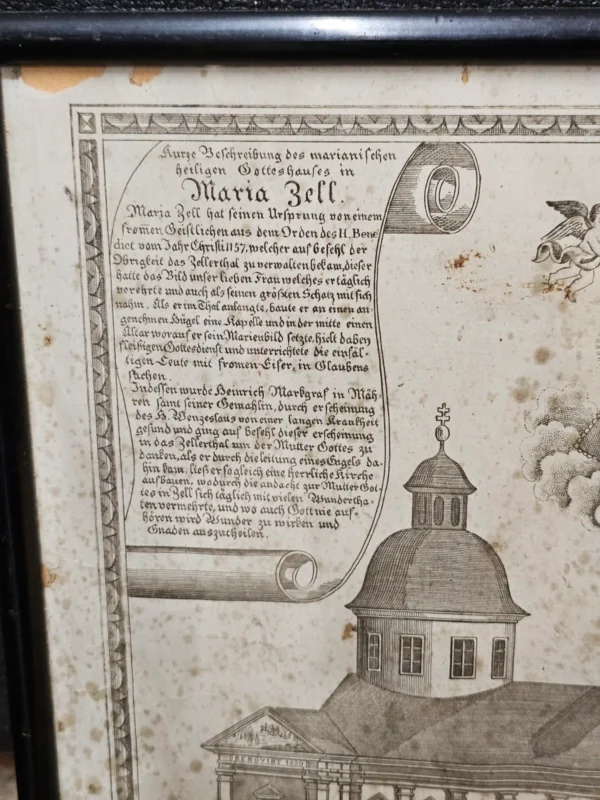 Kurze Beschreibung des marianischen
heiligen Gotteshauses in
Maria Zell.
Maria Zell hat seinen Ursprung von einem
fromen Geistlichen aus dem Orden des H. Bene
dict vom Jahr Christi 1157, welcher auf befehl der
Obrigkeit das Zellerthal zu verwalten bekam, dieser
hatte das Bild unser lieben Frau welches er täglich
verehrte und auch als seinen größten Schatz mit sich
nahm. Als er im Thal anlangte, baute er an einen an-
genehmen Hügel eine Kapelle und in der mitte einen
Altar worauf er sein Marienbild setzte, hielt daben
fleißigen Gottesdienst und unterrichtete die einfäl-
tigen Leute mit fromen Eifer, in Glaubens
sachen.
Indessen wurde Heinrich Markgraf in Mäh-
ren samt seiner Gemahlin, durch erscheinung
des H. Wenzeslaus von einer langen Krankheit
gesund und ging auf befehl dieser erscheinung
in das Zellerthal um der Mutter Gottes zu
danken, als er durch die leitung eines Engels da-
hin kam, ließ er sogleich eine herrliche Kirche
aufbauen, wodurch die andacht zur Mutter Got-
tes in Zell sich täglich mit vielen Wundertha-
ten vermehrte, und wo auch Gott nie auf-
hören wird Wunder zu wirken und
Gnaden auszutheilen.